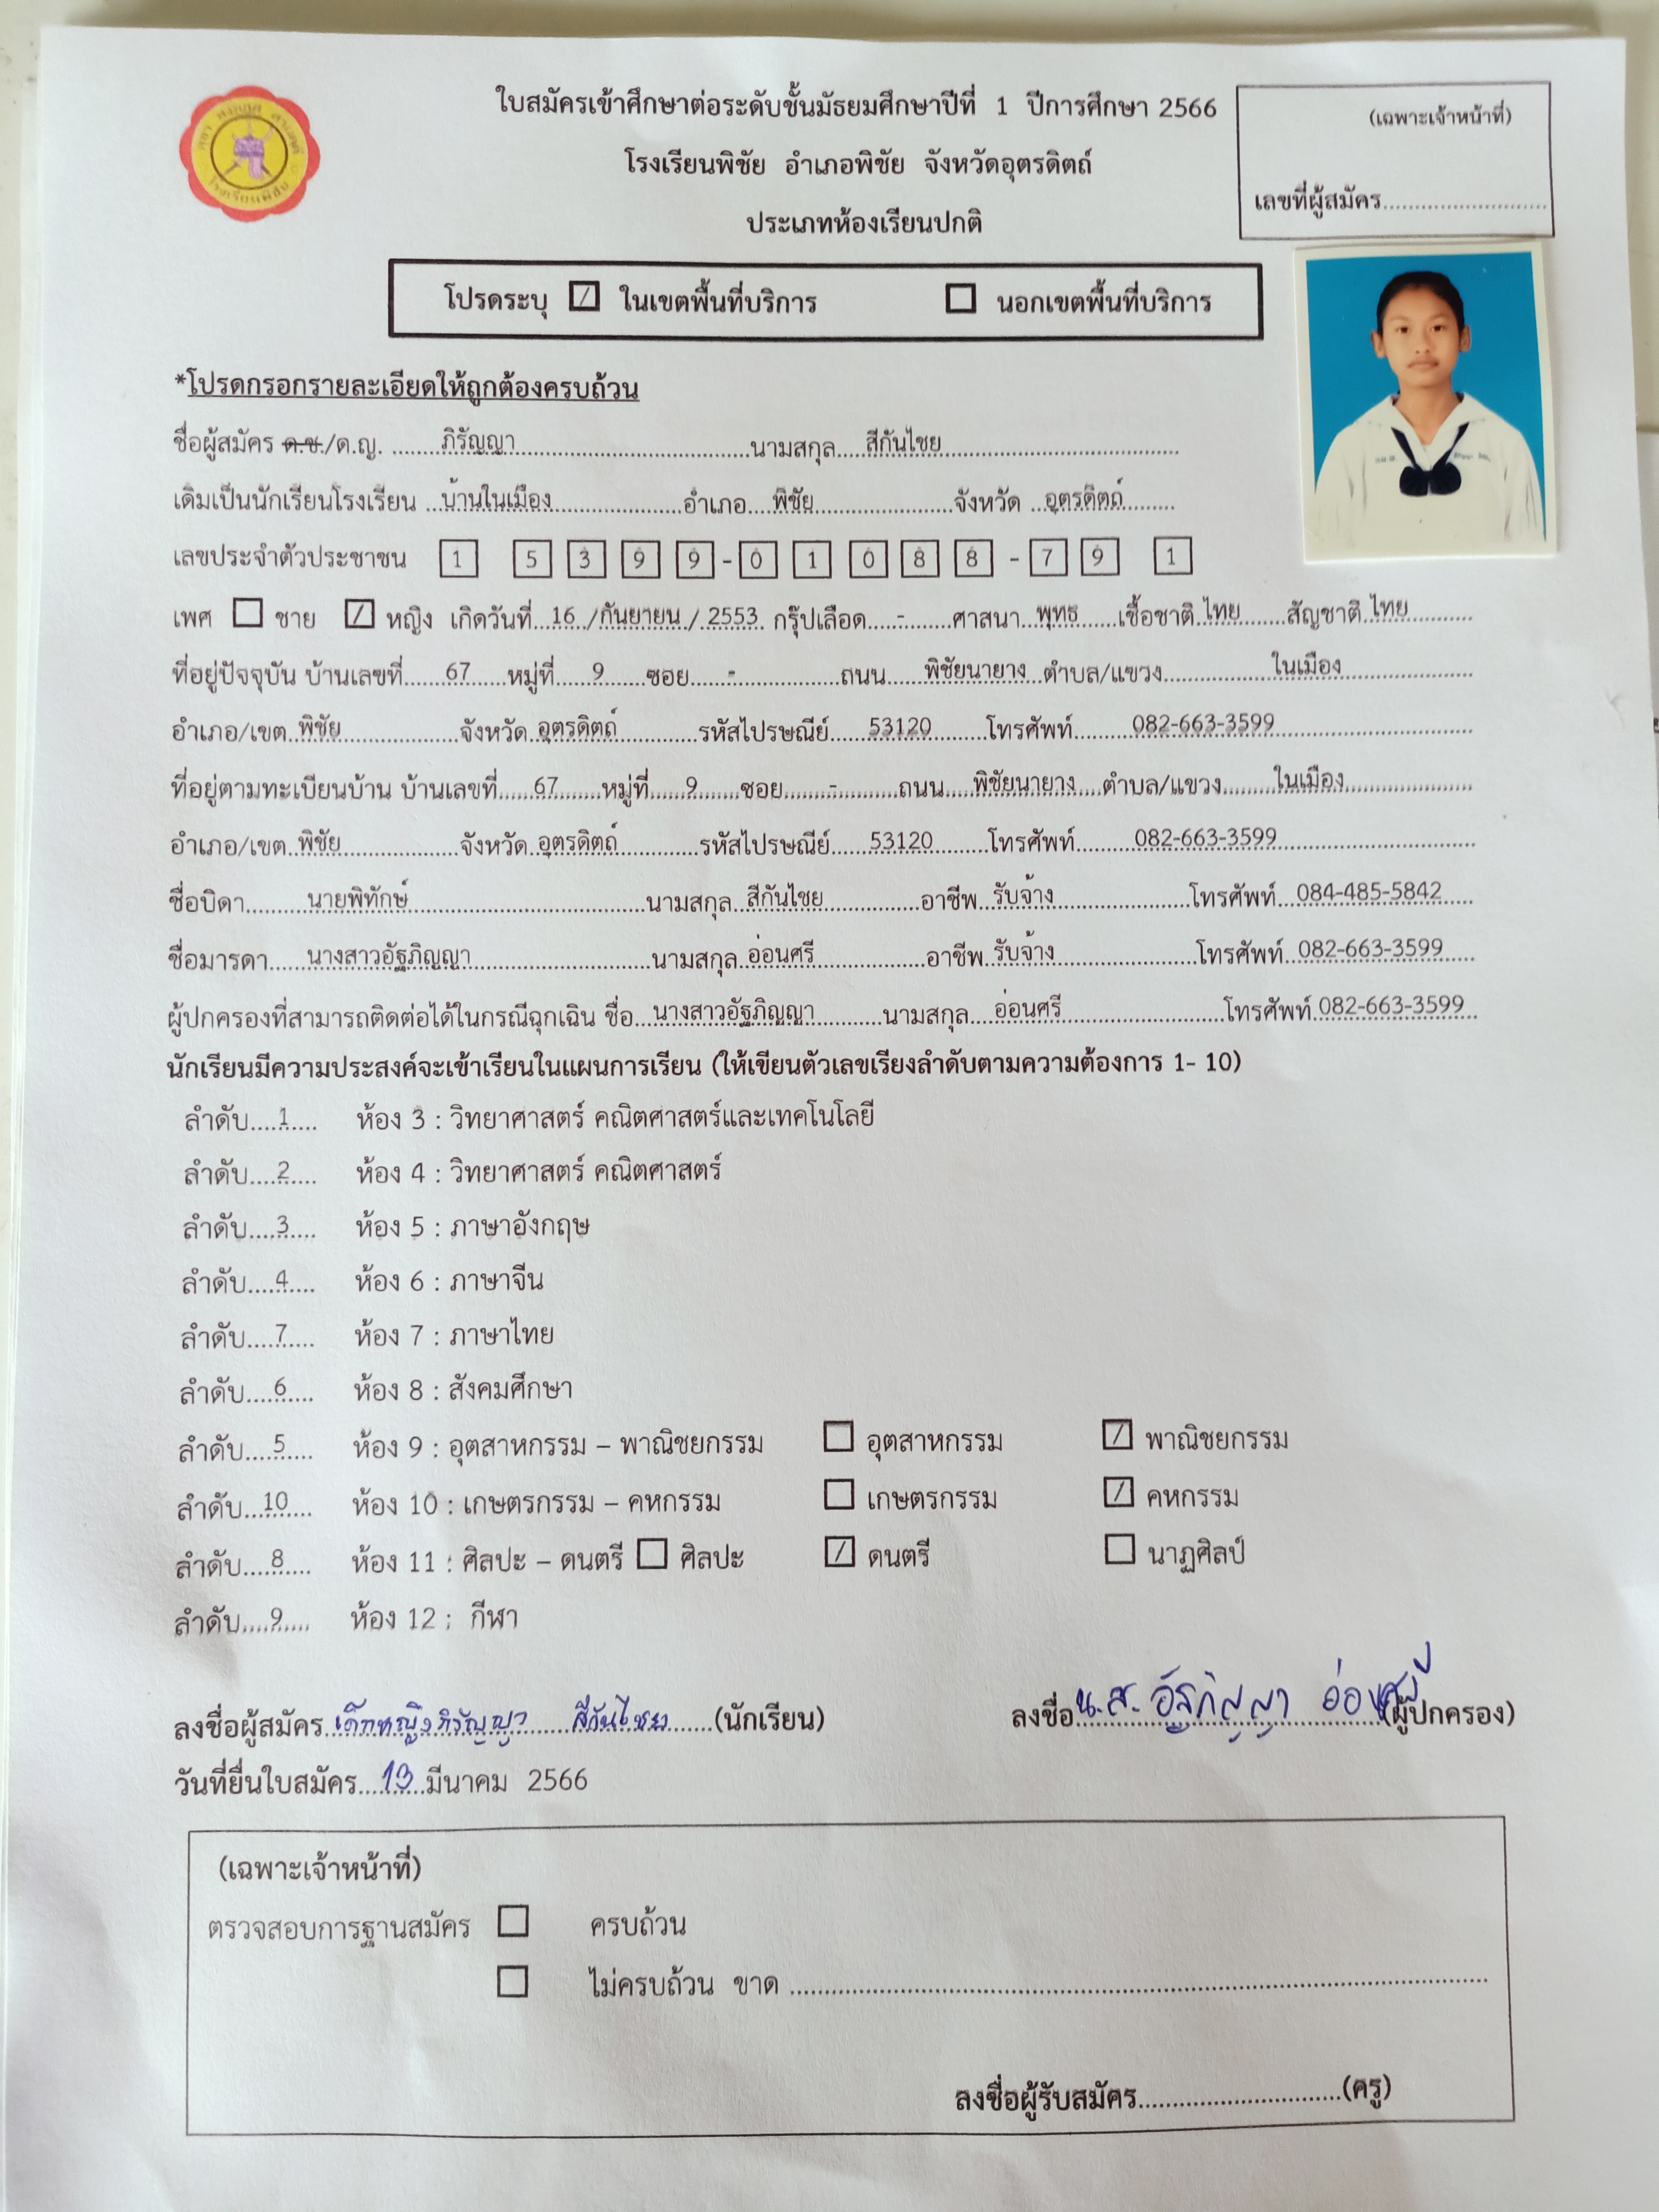 ใบสมัครเข้าศึกษาต่อระดับชั้นมัธยมศึกษาปีที่ 1 ปีการศึกษา 2566
(เฉพาะเจ้าหน้าที่)
โรงเรียนพิชัย อำเภอพิชัย จังหวัดอุตรดิตถ์
เลขที่ผู้สมัคร
ประเภทห้องเรียนปกติ
โรงเรียนพิชัย
โปรดระบุ ☑ ในเขตพื้นที่บริการ ☐ นอกเขตพื้นที่บริการ
*โปรดกรอกรายละเอียดให้ถูกต้องครบถ้วน
ชื่อผู้สมัคร ด.ช./ด.ญ. ภิรัญญา นามสกุล สีกันไชย
เดิมเป็นนักเรียนโรงเรียน บ้านในเมือง อำเภอ พิชัย จังหวัด อุตรดิตถ์
เลขประจำตัวประชาชน 1 5 3 9 9 - 0 1 0 8 8 - 7 9 1
เพศ ☐ ชาย ☑ หญิง เกิดวันที่ 16 / กันยายน / 2553 กรุ๊ปเลือด - ศาสนา พุทธ เชื้อชาติ ไทย สัญชาติ ไทย
ที่อยู่ปัจจุบัน บ้านเลขที่ 67 หมู่ที่ 9 ซอย - ถนน พิชัยนายาง ตำบล/แขวง ในเมือง
อำเภอ/เขต พิชัย จังหวัด อุตรดิตถ์ รหัสไปรษณีย์ 53120 โทรศัพท์ 082-663-3599
ที่อยู่ตามทะเบียนบ้าน บ้านเลขที่ 67 หมู่ที่ 9 ซอย - ถนน พิชัยนายาง ตำบล/แขวง ในเมือง
อำเภอ/เขต พิชัย จังหวัด อุตรดิตถ์ รหัสไปรษณีย์ 53120 โทรศัพท์ 082-663-3599
ชื่อบิดา นายพิทักษ์ นามสกุล สีกันไชย อาชีพ รับจ้าง โทรศัพท์ 084-485-5842
ชื่อมารดา นางสาวอัฐภิญญา นามสกุล อ่อนศรี อาชีพ รับจ้าง โทรศัพท์ 082-663-3599
ผู้ปกครองที่สามารถติดต่อได้ในกรณีฉุกเฉิน ชื่อ นางสาวอัฐภิญญา นามสกุล อ่อนศรี โทรศัพท์ 082-663-3599
นักเรียนมีความประสงค์จะเข้าเรียนในแผนการเรียน (ให้เขียนตัวเลขเรียงลำดับตามความต้องการ 1- 10)
ลำดับ 1 ห้อง 3 : วิทยาศาสตร์ คณิตศาสตร์และเทคโนโลยี
ลำดับ 2 ห้อง 4 : วิทยาศาสตร์ คณิตศาสตร์
ลำดับ 3 ห้อง 5 : ภาษาอังกฤษ
ลำดับ 4 ห้อง 6 : ภาษาจีน
ลำดับ 7 ห้อง 7 : ภาษาไทย
ลำดับ 6 ห้อง 8 : สังคมศึกษา
ลำดับ 5 ห้อง 9 : อุตสาหกรรม – พาณิชยกรรม ☐ อุตสาหกรรม ☑ พาณิชยกรรม
ลำดับ 10 ห้อง 10 : เกษตรกรรม – คหกรรม ☐ เกษตรกรรม ☑ คหกรรม
ลำดับ 8 ห้อง 11 : ศิลปะ – ดนตรี ☐ ศิลปะ ☑ ดนตรี ☐ นาฏศิลป์
ลำดับ 9 ห้อง 12 : กีฬา
ลงชื่อผู้สมัคร เด็กหญิงภิรัญญา สีกันไชย (นักเรียน) ลงชื่อ น.ส. อัฐภิญญา อ่อนศรี (ผู้ปกครอง)
วันที่ยื่นใบสมัคร 13 มีนาคม 2566
(เฉพาะเจ้าหน้าที่)
ตรวจสอบการฐานสมัคร ☐ ครบถ้วน
☐ ไม่ครบถ้วน ขาด
ลงชื่อผู้รับสมัคร (ครู)